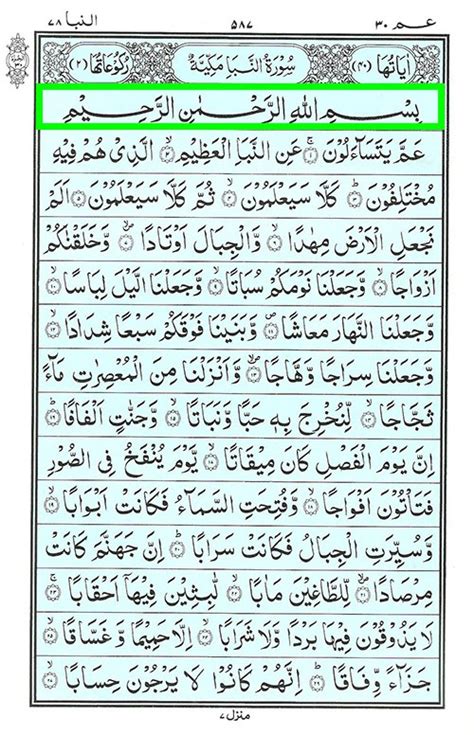 عم ٣٠ ٥٨٧ النبا ٧٨
اٰيَاتُهَا (٤٠) سُوْرَةُ النَّبَاِ مَكِّيَّةٌ رُكُوْعَاتُهَا (٢)
بِسْمِ اللهِ الرَّحْمٰنِ الرَّحِيْمِ
عَمَّ يَتَسَآءَلُوْنَ ۝١ عَنِ النَّبَاِ الْعَظِيْمِ ۝٢ الَّذِىْ هُمْ فِيْهِ
مُخْتَلِفُوْنَ ۝٣ كَلَّا سَيَعْلَمُوْنَ ۝٤ ثُمَّ كَلَّا سَيَعْلَمُوْنَ ۝٥ اَلَمْ
نَجْعَلِ الْاَرْضَ مِهٰدًا ۝٦ وَّالْجِبَالَ اَوْتَادًا ۝٧ وَّخَلَقْنٰكُمْ
اَزْوَاجًا ۝٨ وَّجَعَلْنَا نَوْمَكُمْ سُبَاتًا ۝٩ وَّجَعَلْنَا الَّيْلَ لِبَاسًا ۝١٠
وَّجَعَلْنَا النَّهَارَ مَعَاشًا ۝١١ وَّبَنَيْنَا فَوْقَكُمْ سَبْعًا شِدَادًا ۝١٢
وَّجَعَلْنَا سِرَاجًا وَّهَّاجًا ۝١٣ وَّاَنْزَلْنَا مِنَ الْمُعْصِرٰتِ مَآءً
ثَجَّاجًا ۝١٤ لِّنُخْرِجَ بِهٖ حَبًّا وَّنَبَاتًا ۝١٥ وَّجَنّٰتٍ اَلْفَافًا ۝١٦
اِنَّ يَوْمَ الْفَصْلِ كَانَ مِيْقَاتًا ۝١٧ يَّوْمَ يُنْفَخُ فِى الصُّوْرِ
فَتَاْتُوْنَ اَفْوَاجًا ۝١٨ وَّفُتِحَتِ السَّمَآءُ فَكَانَتْ اَبْوَابًا ۝١٩
وَّسُيِّرَتِ الْجِبَالُ فَكَانَتْ سَرَابًا ۝٢٠ اِنَّ جَهَنَّمَ كَانَتْ
مِرْصَادًا ۝٢١ لِّلطَّاغِيْنَ مَاٰبًا ۝٢٢ لّٰبِثِيْنَ فِيْهَآ اَحْقَابًا ۝٢٣
لَا يَذُوْقُوْنَ فِيْهَا بَرْدًا وَّلَا شَرَابًا ۝٢٤ اِلَّا حَمِيْمًا وَّغَسَّاقًا ۝٢٥
جَزَآءً وِّفَاقًا ۝٢٦ اِنَّهُمْ كَانُوْا لَا يَرْجُوْنَ حِسَابًا ۝٢٧
منزل ٧